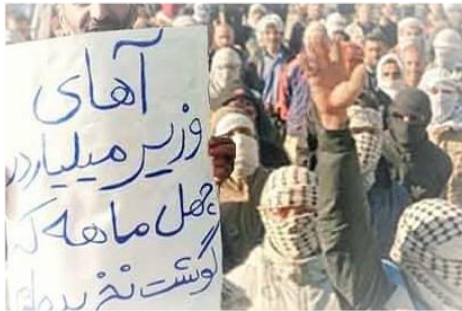 آهای
وزیر میلیاردر
چهل ماهه که
گوشت نخریده‌ام